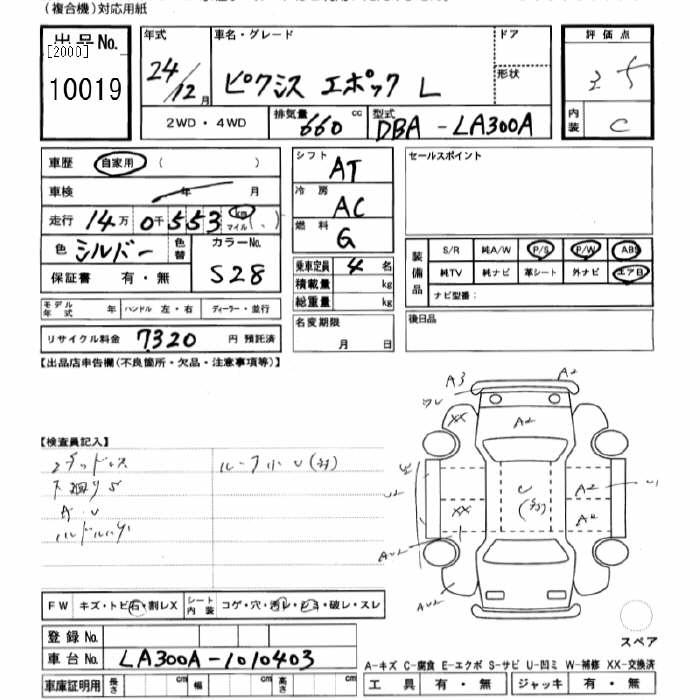 (複合機)対応用紙
出品No.
[2000]
10019
年式
24/12月
車名・グレード
ピクシス エポック L
ドア
形状
評価点
3.5
内装
C
2WD・4WD
排気量
660 cc
型式
DBA-LA300A
車歴 自家用 ( )
車検 年 月
走行 14万 0千 553 km マイル ( )
色 シルバー
色替
カラーNo.
S28
保証書 有・無
モデル年式 年 ハンドル 左・右 ディーラー・並行
リサイクル料金 7320 円 預託済
シフト
AT
冷房
AC
燃料
G
乗車定員 4 名
積載量 kg
総重量 kg
名変期限
月 日
セールスポイント
装備品
S/R 純A/W P/S P/W ABS
純TV 純ナビ 革シート 外ナビ エアB
ナビ型番:
後日品
【出品店申告欄(不良箇所・欠品・注意事項等)】
【検査員記入】
下廻りS
A・U
A3 A2
XX A2
A2
XX A2
AU2
AU2
FW キズ・トビ石・割レX
シート内装 コゲ・穴・汚レ・シミ・破レ・スレ
スペア
登録No.
車台No. LA300A-1010403
車庫証明用 長さ cm 幅 cm 高さ cm
A-キズ C-腐食 E-エクボ S-サビ U-凹ミ W-補修 XX-交換済
工具 有・無 ジャッキ 有・無